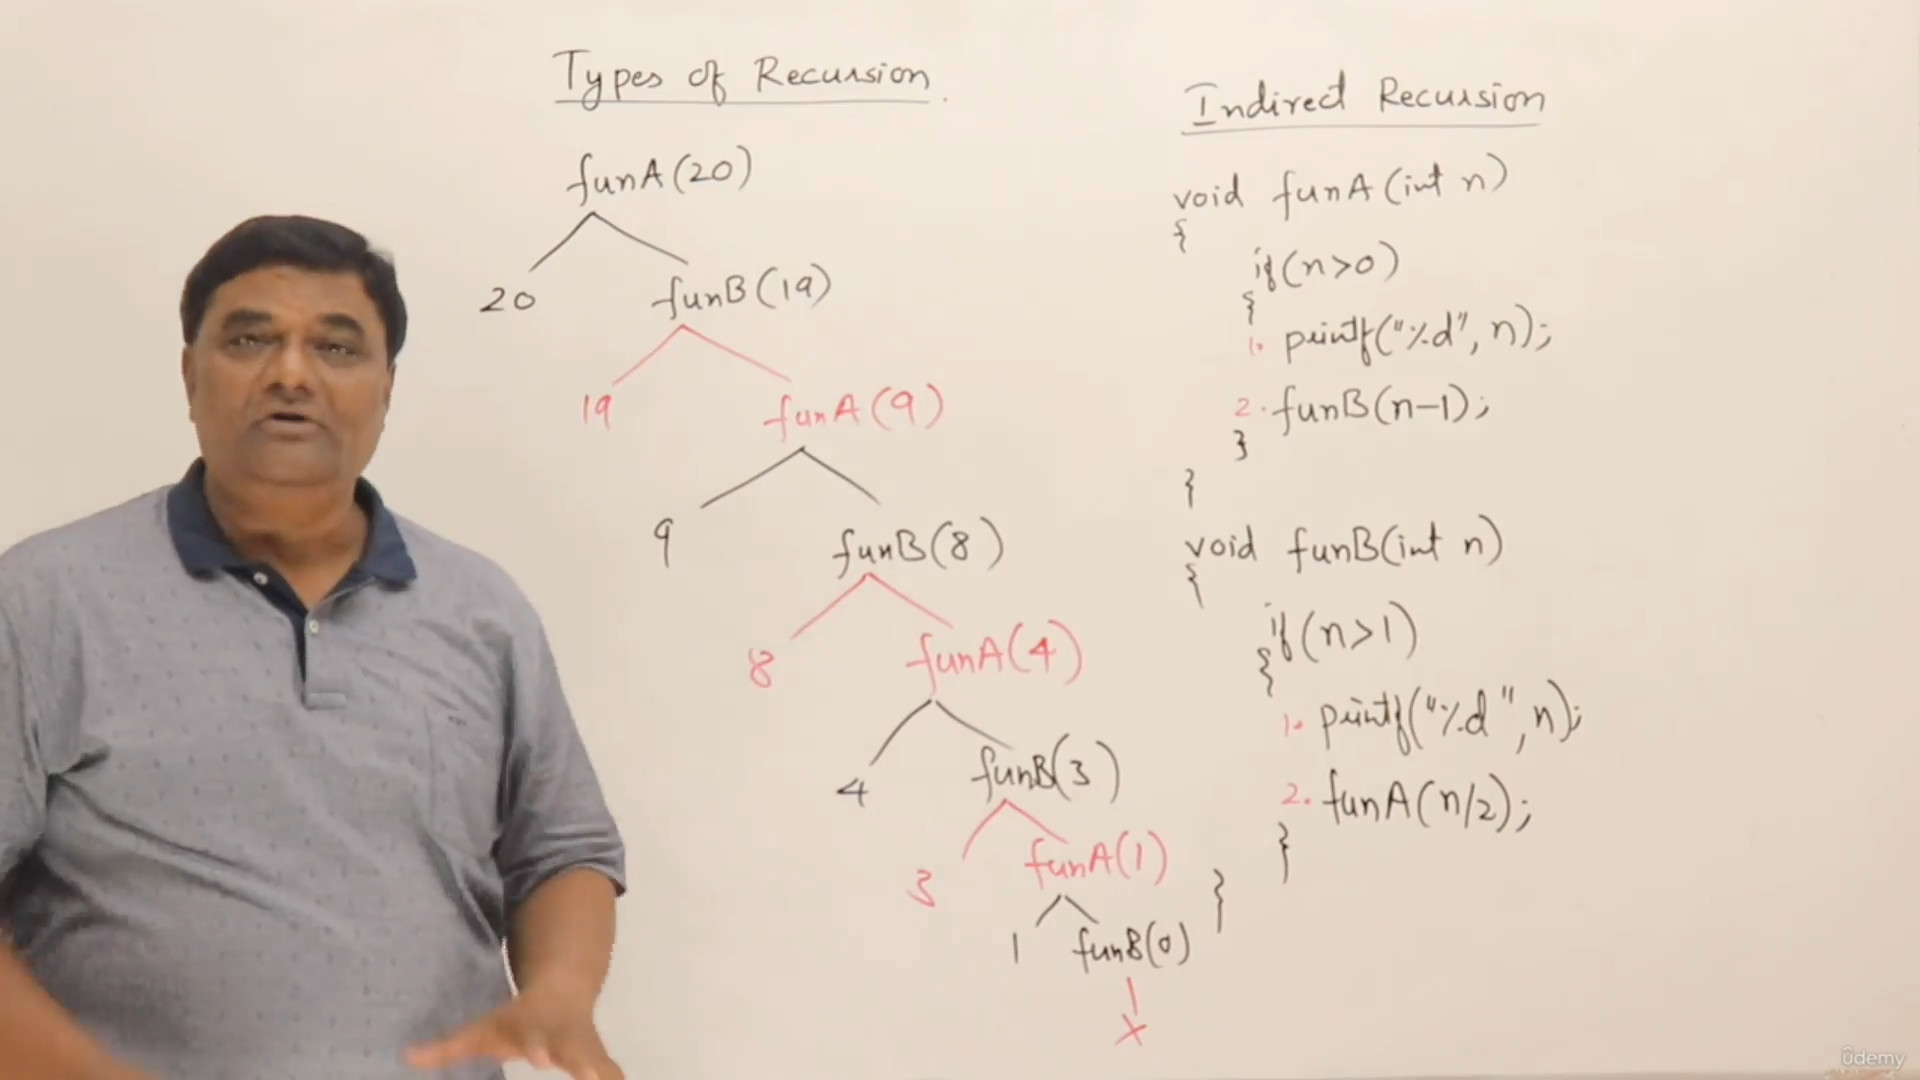 Types of Recursion
funA(20)
20 funB(19)
19 funA(9)
9 funB(8)
8 funA(4)
4 funB(3)
3 funA(1)
1 funB(0)
X
Indirect Recursion
void funA(int n)
{
if(n>0)
{
1. printf("%d", n);
2. funB(n-1);
}
}
void funB(int n)
{
if(n>1)
{
1. printf("%d", n);
2. funA(n/2);
}
}
ûdemy